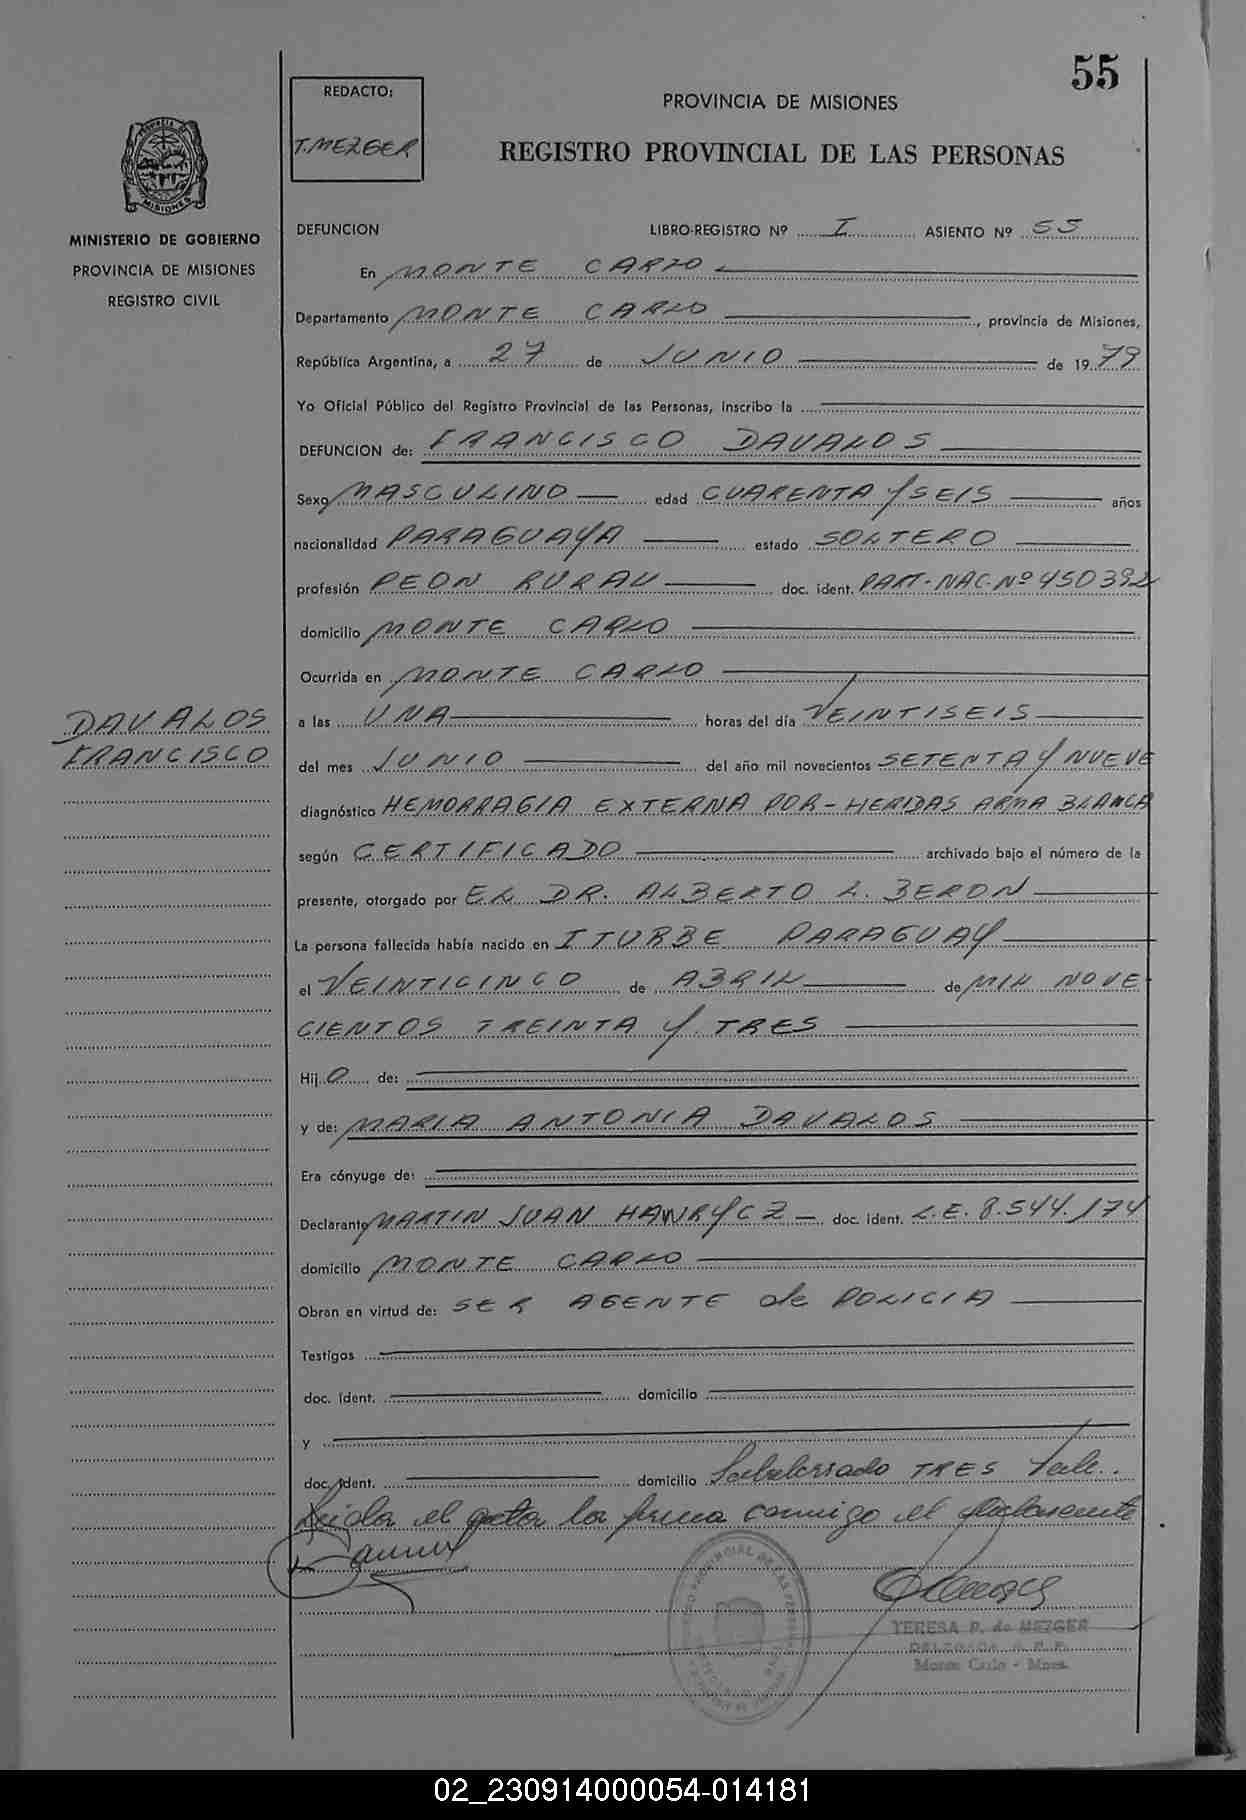 55
REDACTO:
T. MEZGER
PROVINCIA DE MISIONES
REGISTRO PROVINCIAL DE LAS PERSONAS
PROVINCIA DE
MISIONES
MINISTERIO DE GOBIERNO
PROVINCIA DE MISIONES
REGISTRO CIVIL
DEFUNCION LIBRO-REGISTRO Nº I ASIENTO Nº 55
En MONTE CARLO
Departamento MONTE CARLO, provincia de Misiones,
República Argentina, a 27 de JUNIO de 1979
Yo Oficial Público del Registro Provincial de las Personas, inscribo la
DEFUNCION de: FRANCISCO DAVALOS
Sexo MASCULINO edad CUARENTA Y SEIS años
nacionalidad PARAGUAYA estado SOLTERO
profesión PEON RURAL doc. ident. PART. NAC. Nº 450392
domicilio MONTE CARLO
Ocurrida en MONTE CARLO
DAVALOS
FRANCISCO
a las UNA horas del día VEINTISEIS
del mes JUNIO del año mil novecientos SETENTA Y NUEVE
diagnóstico HEMORRAGIA EXTERNA POR-HERIDAS ARMA BLANCA
según CERTIFICADO archivado bajo el número de la
presente, otorgado por EL DR. ALBERTO L. BERON
La persona fallecida había nacido en ITURBE PARAGUAY
el VEINTICINCO de ABRIL de MIL NOVE
CIENTOS TREINTA Y TRES
Hij O de:
y de: MARIA ANTONIA DAVALOS
Era cónyuge de:
Declarante MARTIN JUAN HAWRYCZ doc. ident. L.E. 8.544.174
domicilio MONTE CARLO
Obran en virtud de: SER AGENTE de POLICIA
Testigos
doc. ident. domicilio
y
doc. ident. domicilio Sobrerraspado TRES Vale.
Leida el acta la firma conmigo el declarante
TERESA P. de MEZGER
DELEGADA R. P. P.
Monte Carlo - Mnes.
02_230914000054-014181